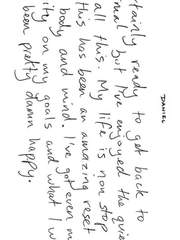 DANIEL
tainly ready to get back to
rmal but I've enjoyed the quie
all this. My life is non stop
this has been an amazing reset
body and mind. I've got even m
ity on my goals and what I w
been pretty damn happy.